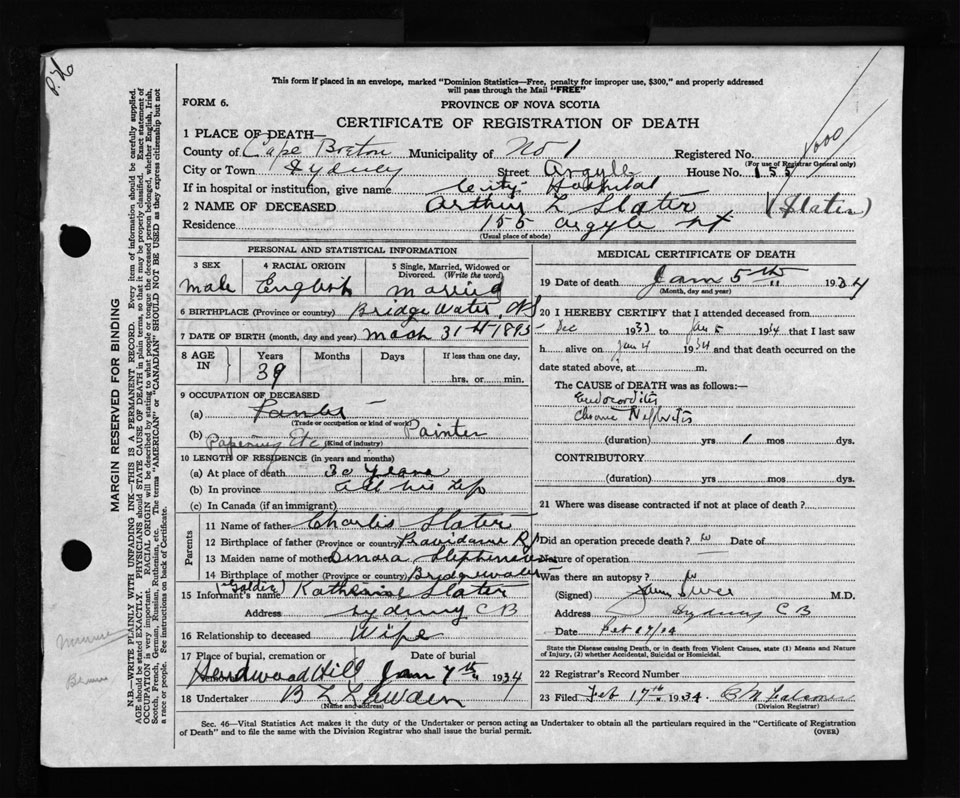 This form if placed in an envelope, marked "Dominion Statistics—Free, penalty for improper use, $300," and properly addressed
will pass through the Mail "FREE"
FORM 6.
PROVINCE OF NOVA SCOTIA
CERTIFICATE OF REGISTRATION OF DEATH
1 PLACE OF DEATH—
County of Cape Breton Municipality of No 1 Registered No.
(For use of Registrar General only)
City or Town Sydney Street Argyle House No. 155
If in hospital or institution, give name City Hospital
2 NAME OF DECEASED Arthur L Slater (Slater)
Residence 155 Argyle St
(Usual place of abode)
PERSONAL AND STATISTICAL INFORMATION
3 SEX 4 RACIAL ORIGIN 5 Single, Married, Widowed or Divorced. (Write the word)
male English married
6 BIRTHPLACE (Province or country) Bridgewater, NS
7 DATE OF BIRTH (month, day and year) Mach 31st 1895
8 AGE IN Years Months Days If less than one day,
39 hrs. or min.
9 OCCUPATION OF DECEASED
(a)
(Trade or occupation or kind of work) Painter
(b) Papering Etc (Kind of industry)
10 LENGTH OF RESIDENCE (in years and months)
(a) At place of death 30 years
(b) In province all his life
(c) In Canada (if an immigrant)
Parents
11 Name of father Charlis Slater
12 Birthplace of father (Province or country) Providance R I
13 Maiden name of mother Stephenson
14 Birthplace of mother (Province or country) Bridgewater
15 Informant's name Katherine Slater
Address Sydney C B
16 Relationship to deceased Wife
17 Place of burial, cremation or Date of burial
Hardwood Hill Jan 7th 1934
18 Undertaker B L
(Name and address)
MEDICAL CERTIFICATE OF DEATH
19 Date of death Jan 5th 1934
(Month, day and year)
20 I HEREBY CERTIFY that I attended deceased from
Dec 1933 to Jan 5 1934 that I last saw
h alive on Jan 4 1934 and that death occurred on the
date stated above, at m.
The CAUSE OF DEATH was as follows:
Endocarditis
Chronic Nephritis
(duration) yrs 1 mos dys.
CONTRIBUTORY
(duration) yrs mos dys.
21 Where was disease contracted if not at place of death?
Did an operation precede death? no Date of
Nature of operation
Was there an autopsy? no
(Signed) M.D.
Address Sydney C B
Date
State the Disease causing Death, or in death from Violent Causes, state (1) Means and Nature
of Injury, (2) whether Accidental, Suicidal or Homicidal.
22 Registrar's Record Number
23 Filed Feb 17th 1934.
(Division Registrar)
Sec. 46—Vital Statistics Act makes it the duty of the Undertaker or person acting as Undertaker to obtain all the particulars required in the "Certificate of Registration
of Death" and to file the same with the Division Registrar who shall issue the burial permit.
(OVER)
MARGIN RESERVED FOR BINDING
N.B.—WRITE PLAINLY WITH UNFADING INK—THIS IS A PERMANENT RECORD. Every item of information should be carefully supplied.
AGE should be stated EXACTLY. PHYSICIANS should STATE CAUSE OF DEATH in plain terms, so that it may be properly classified. Exact statement of
OCCUPATION is very important. RACIAL ORIGIN will be described by stating to what people or tongue the deceased person belonged, whether English, Irish,
Scotch, French, German, Russian, Ruthenian, etc. The terms "AMERICAN" or "CANADIAN" SHOULD NOT BE USED as they express citizenship but not
a race or people. See instructions on back of Certificate.